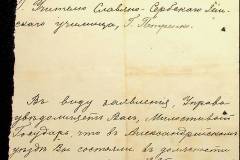 Учителю Славяно-Сербскаго Зем-
скаго училища, Г. Петренко.
Въ виду заявленія, Управа
увѣдомляетъ Васъ, Милостивый
Государь, что въ Александрійскомъ
уѣздѣ Вы состояли въ должности